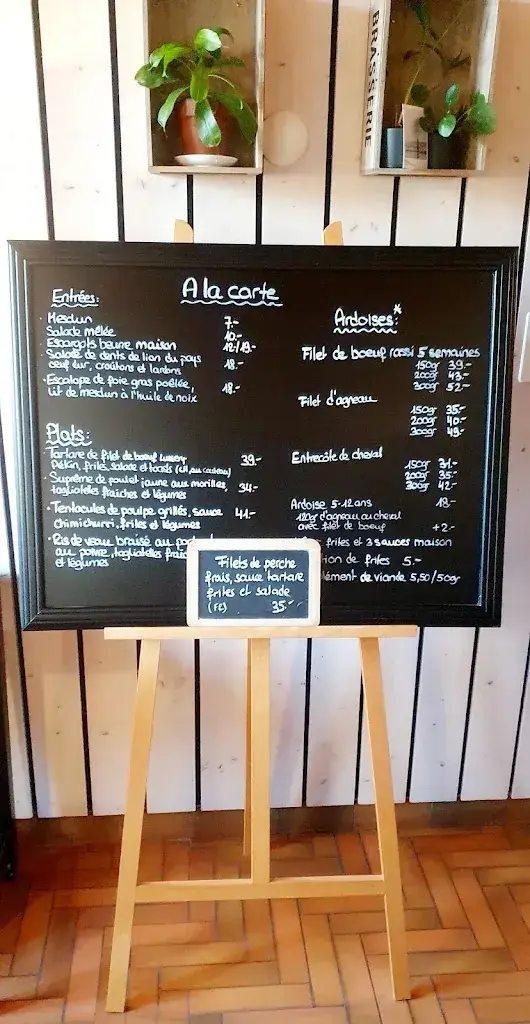 BRASSERIE
A la carte
Entrées:
· Mesclun 7.-
Salade mêlée 10.-
Escargots beurre maison 12/19.-
· Salade de dents de lion du pays 18.-
œuf dur, croûtons et lardons
· Escalope de foie gras poêlée, 18.-
lit de mesclun à l'huile de noix
Plats:
· Tartare de filet de bœuf
Pékin, frites, salade et toasts 39.-
· Suprême de poulet jaune aux morilles, 34.-
tagliatelles fraîches et légumes
· Tentacules de poulpe grillés, sauce 41.-
chimichurri, frites et légumes
· Ris de veau braisé au
au poivre, tagliatelles
et légumes
Ardoises*:
Filet de boeuf rassi 5 semaines
150gr 39.-
200gr 43.-
300gr 52.-
Filet d'agneau
150gr 35.-
200gr 40.-
300gr 49.-
Entrecôte de cheval
150gr 31.-
200gr 35.-
300gr 42.-
Ardoise 5-12 ans 18.-
120gr d'agneau ou cheval
avec filet de boeuf +2.-
frites et 3 sauces maison
de frites 5.-
de viande 5,50/50gr
Filets de perche
frais, sauce tartare
frites et salade
35.-